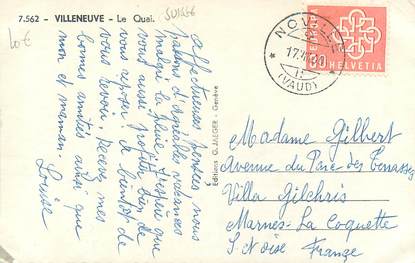 7.562 - VILLENEUVE - Le Quai.
SUISSE
10 €
Affectueuses pensées nous
passons d'agréables vacances
malgré la pluie. J'espère que
vous aussi profitez bien de
vous reposer. à bientôt de
vous revoir, recevez mes
bonnes amitiés ainsi que
mon et maman.
Louise
Editions O. JAEGER - Genève
NOVILLE
17. 60
(VAUD)
EUROPA
HELVETIA
Madame Gilbert
Avenue du Parc des Terrasses
Villa Gilchris
Marnes-La Coquette
S. &. Oise France